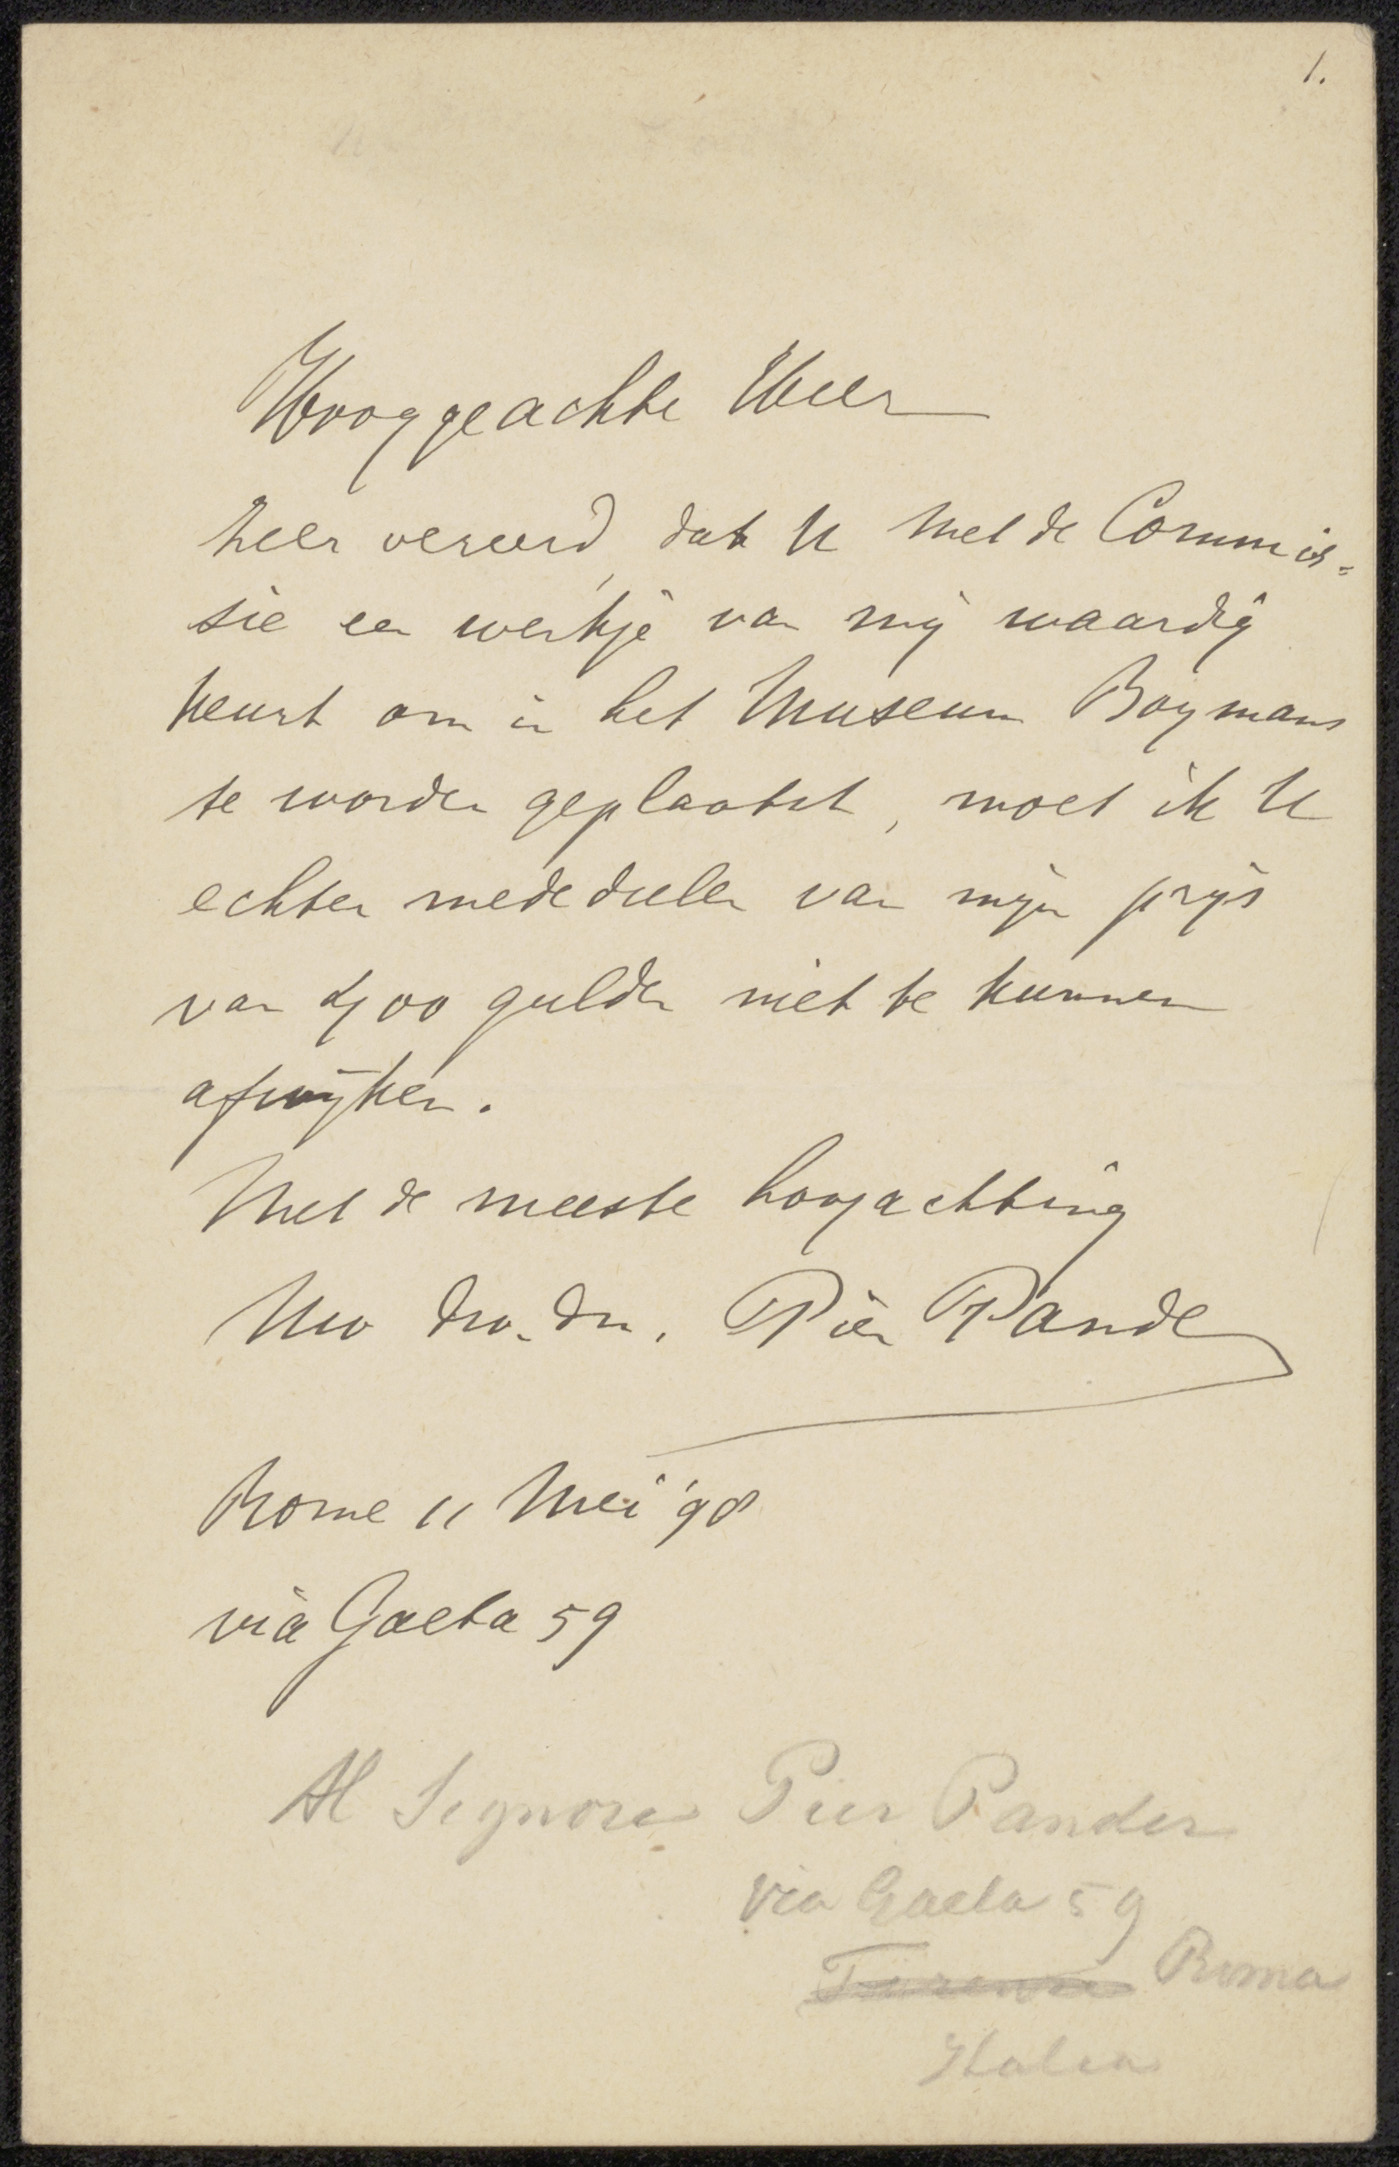 1.
Hooggeachte Heer
Zeer vereerd, dat U met de Commis=
sie een werkje van mij waardig
keurt om in het Museum Boymans
te worden geplaatst, moet ik U
echter mededeelen van mijn prijs
van 400 gulden niet te kunnen
afwijken.
Met de meeste hoogachting
Uw dw. dr. Pier Pander
Rome 11 Mei '98
via Gaeta 59
Al Signore Pier Pander
Via Gaeta 59
Firenze Roma
Italia